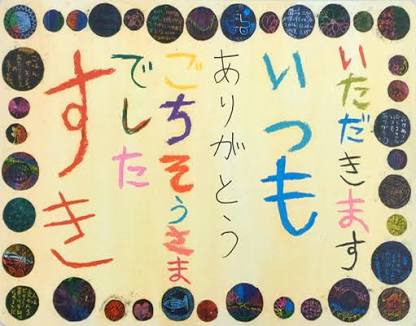 いただきます
いつも
ありがとう
ごちそうさま
でした
すき